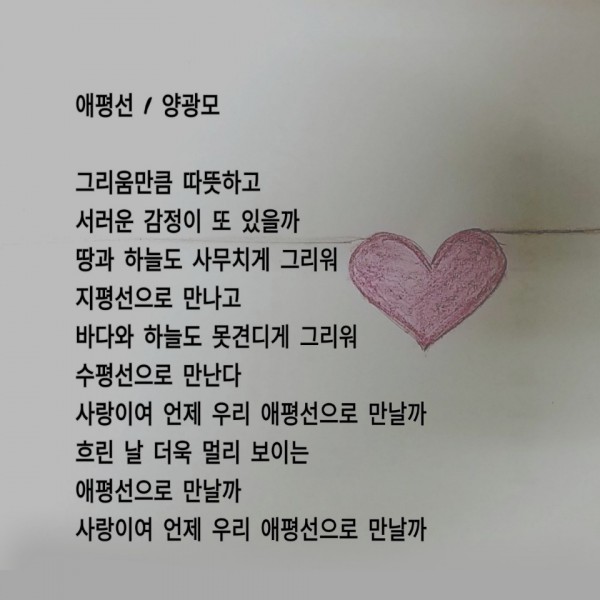 애평선 / 양광모
그리움만큼 따뜻하고
서러운 감정이 또 있을까
땅과 하늘도 사무치게 그리워
지평선으로 만나고
바다와 하늘도 못견디게 그리워
수평선으로 만난다
사랑이여 언제 우리 애평선으로 만날까
흐린 날 더욱 멀리 보이는
애평선으로 만날까
사랑이여 언제 우리 애평선으로 만날까